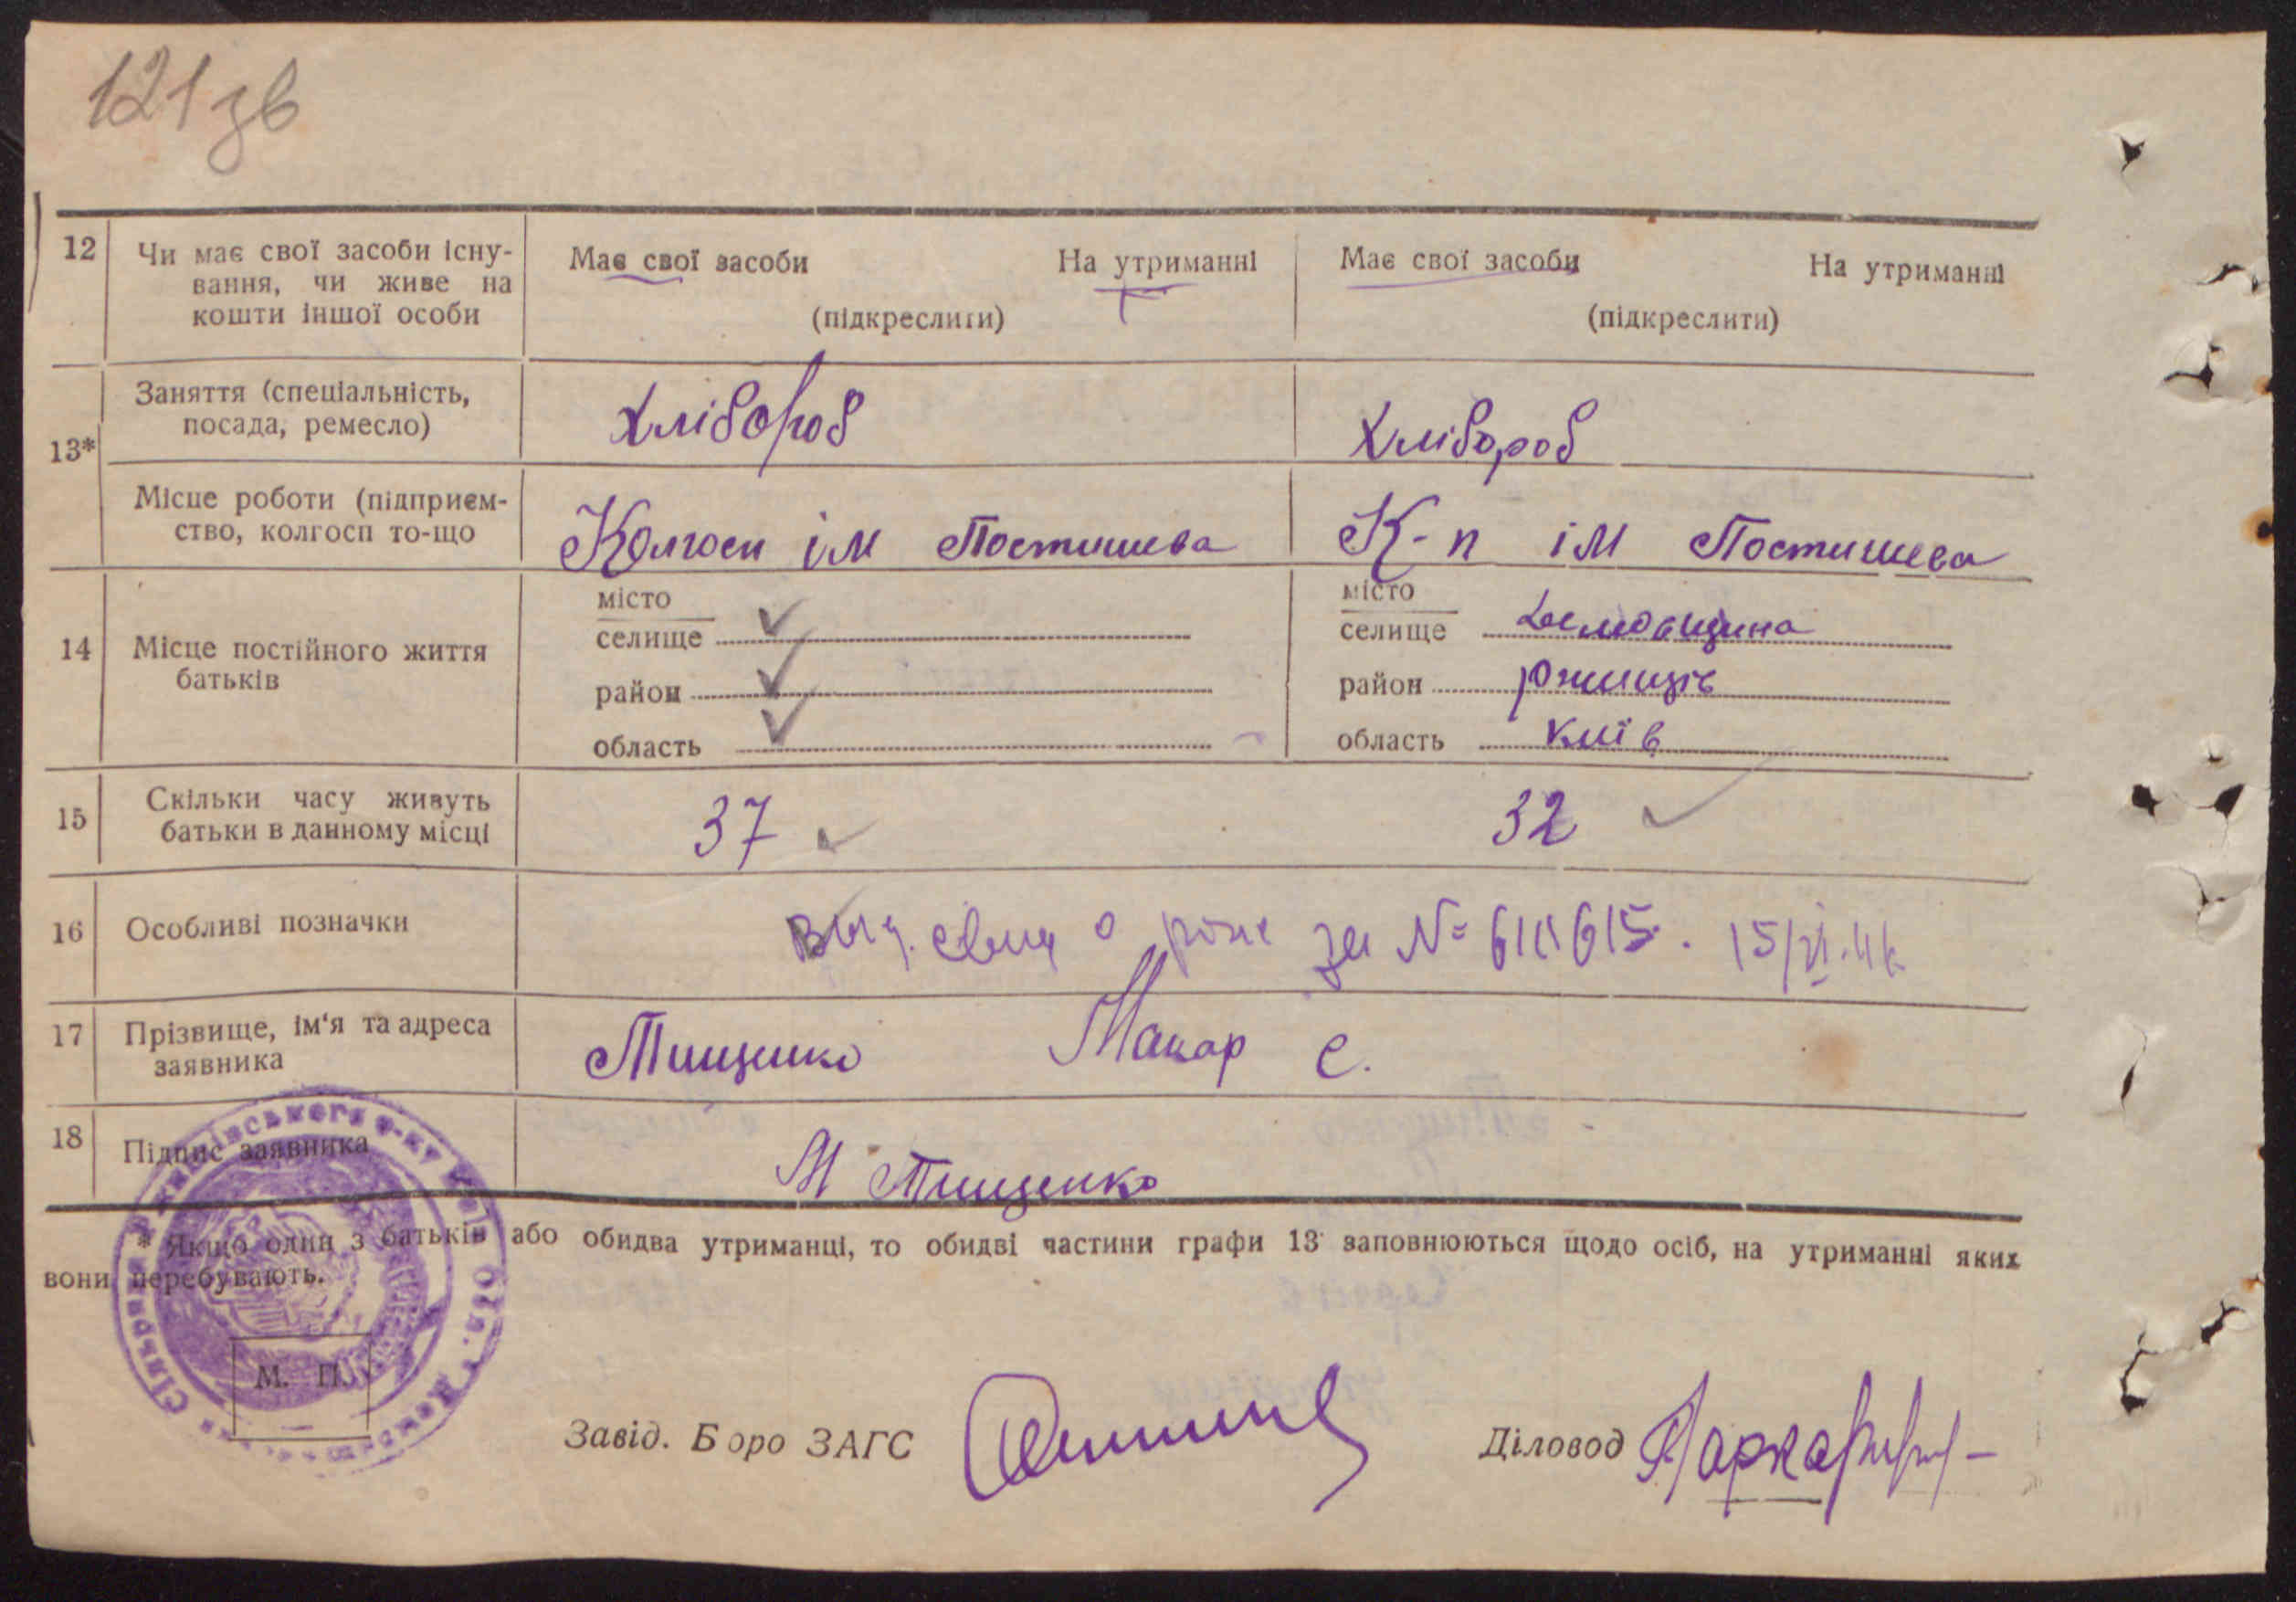 121 зв
12 Чи має свої засоби існу-
вання, чи живе на
кошти іншої особи
Має свої засоби На утриманні
(підкреслити)
Має свої засоби На утриманні
(підкреслити)
13*
Заняття (спеціальність,
посада, ремесло)
хлібороб
хлібороб
Місце роботи (підприєм-
ство, колгосп то-що
Колгосп ім Постишева
К-п ім Постишева
14 Місце постійного життя
батьків
місто
селище
район
область
місто
селище
район
область Київ
15 Скільки часу живуть
батьки в данному місці
37
32
16 Особливі позначки
за №
17 Прізвище, ім'я та адреса
заявника
Тищенко Макар С.
18 Підпис заявника
М Тищенко
* Якщо один з батьків або обидва утриманці, то обидві частини графи 13 заповнюються щодо осіб, на утриманні яких
вони перебувають.
М. П.
Завід. Бюро ЗАГС
Діловод